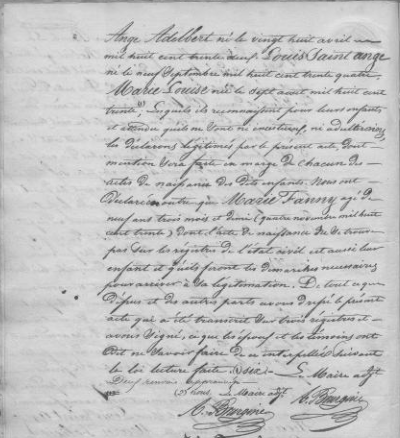 Ange Adelbert né le vingt huit avril
mil huit cent trente deux Louis Saint ange
né le neuf Septembre mil huit cent trente quatre
Marie Louise née le sept aout mil huit cent
trente lesquels ils reconnaissent pour leurs enfants
et attendu qu'ils ne sont ni incestueux, ni adultérins
les déclarons légitimés par le présent acte, dont
mention sera faite en marge de chacun des
actes de naissance des dits enfants. Nous ont
déclaré en outre que Marie Fanny agé de
neuf ans trois mois et demi (quatre novembre mil huit
cent trente) dont l'acte de naissance ne se trouve
pas sur les registres de l'état civil est aussi leur
enfant et qu'ils feront les démarches necessaires
pour arriver à sa légitimation. De tout ce que
dessus et des autres parts avons dressé le présent
acte qui a été transcrit sur trois registres et
avons signé, ce que les époux et les témoins ont
dit ne savoir faire de ce interpellés suivant
la loi lecture faite
Le Maire adjt
Deux renvois approuvés
Le Maire adjt